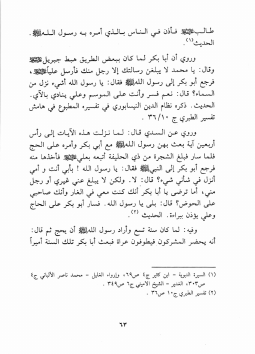 طالب ﷺ فأذن في الناس بالذي أمره به رسول الله ﷺ.
الحديث(١).
وروي أن أبا بكر لما كان ببعض الطريق هبط جبريل ﷺ
وقال: يا محمد لا يبلغن رسالتك إلا رجل منك فأرسل علياً ﷺ
فرجع أبو بكر إلى رسول الله ﷺ فقال: يا رسول الله أشيء نزل من
السماء؟ قال: نعم فسر وأنت على الموسم وعلي ينادي بالآي.
الحديث. ذكره نظام الدين النيسابوري في تفسيره المطبوع في هامش
تفسير الطبري ج ٣٦/١٠.
وروي عن السدي قال: لما نزلت هذه الآيات إلى رأس
أربعين آية بعث بهن رسول الله ﷺ مع أبي بكر وأمره على الحج
فلما سار فبلغ الشجرة من ذي الحليفة أتبعه بعلي ﷺ فأخذها منه
فرجع أبو بكر إلى النبي ﷺ فقال: يا رسول الله! بأبي أنت و أمي
أنزل في شأني شيء؟ قال: لا. ولكن لا يبلغ عني غيري أو رجل
مني، أما ترضى يا أبا بكر أنك كنت معي في الغار وأنك صاحبي
على الحوض؟ قال: بلى يا رسول الله. فسار أبو بكر على الحاج
وعلي يؤذن ببراءة. الحديث(٢).
وفيه: لما كان سنة تسع وأراد رسول الله ﷺ أن يحج ثم قال:
أنه يحضر المشركون فيطوفون عراة فبعث أبا بكر تلك السنة أميراً
(١) السيرة النبوية - ابن كثير ج٤ ص٦٩، وإرواء الغليل - محمد ناصر الألباني ج٤
ص٣٠٣، الغدير - الشيخ الأميني ج٦ ص٣٤٩.
(٢) تفسير الطبري ج١٠ ص٣٦.
٦٣